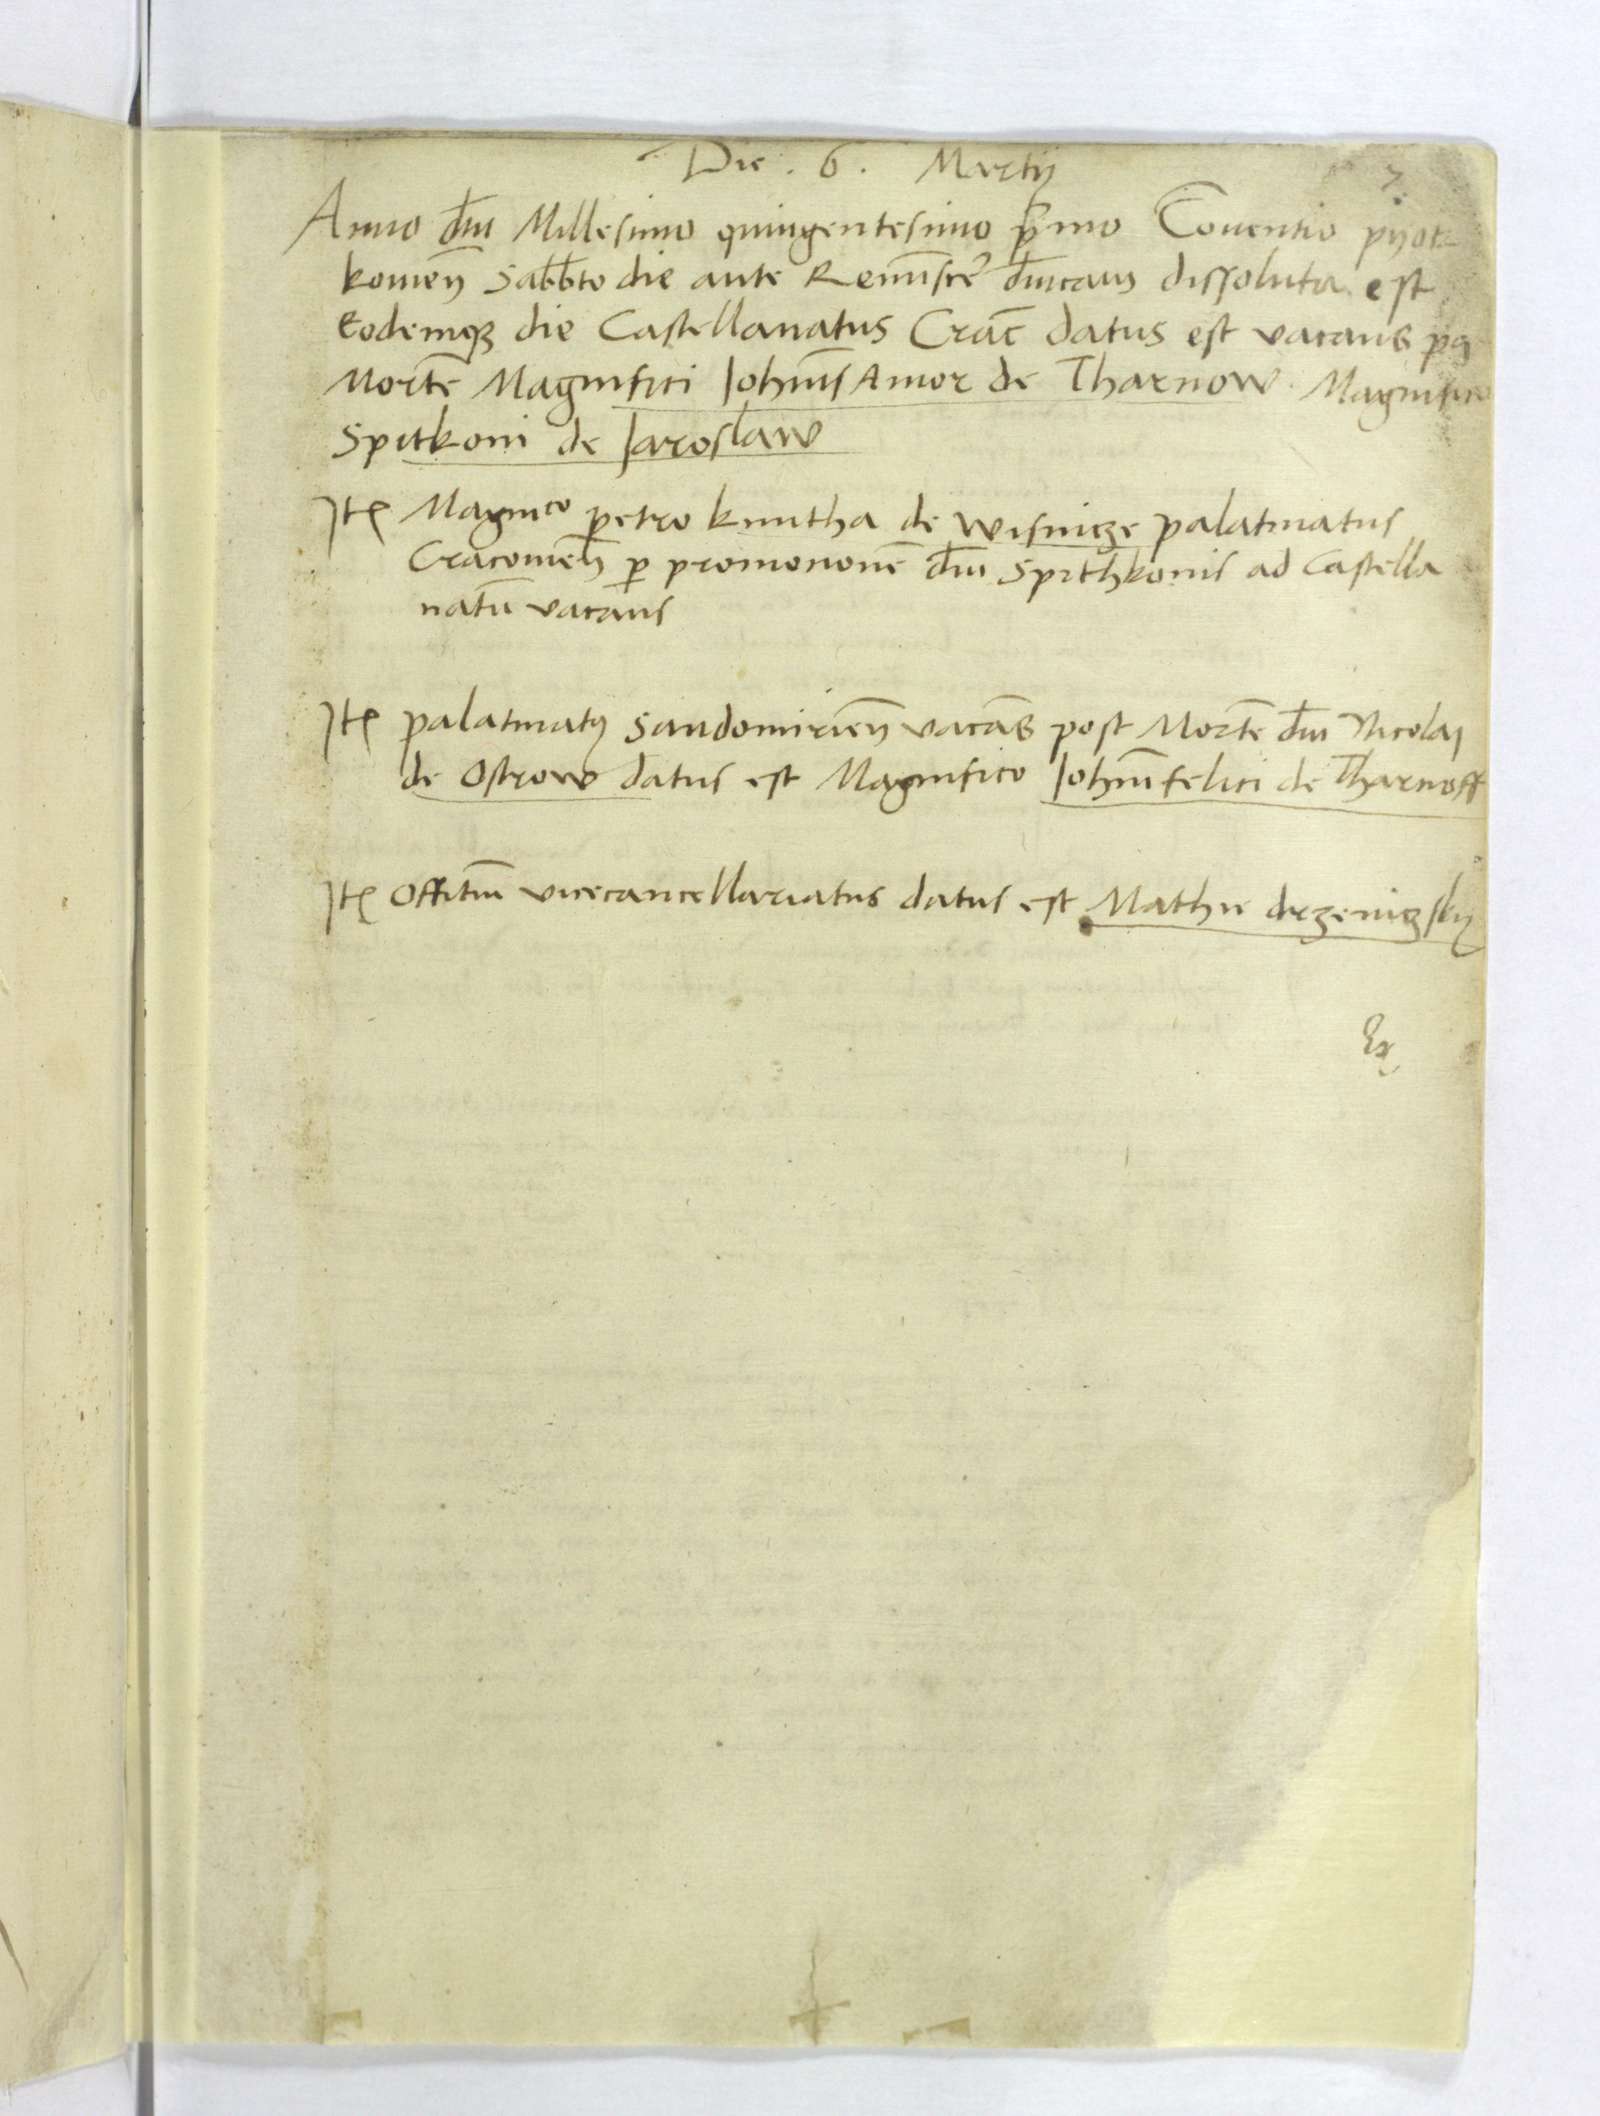 Die . 6 . Martij
Anno dm̄ Millesimo quingentesimo p̄mo Cōuentio pijot
kowieñ Sabbto die ante Remīscer̄ dnīcam dissoluta est
Eodemqꝫ die Castellanatus Crac̄ datus est vacans pꝯ
Mortē Magnifici Iohan̄is Amor de Tharnow Magnifico
Spitkoni de Jaroslaw
Itꝫ Magnico petro kmitha de wisnicze palatinatus
Cracouieñ ꝑ promocionē dm̄ Spithkonis ad Castella
natū vacans
Itꝫ palatinatꝯ Sandomirieñ vacās post Mortē dm̄ Nicolai
de Ostrow datus est Magnifico Iohañi felici de Tharnoff
Itꝫ offitiū vicecancellariatus datus est Mathie drzeniczskij